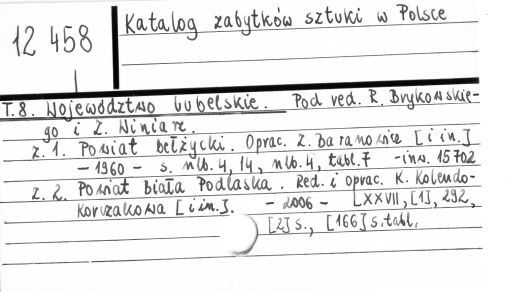 12 458
Katalog zabytków sztuki w Polsce
T.8. Województwo lubelskie. Pod red. R. Brykowskie-
go i Z. Winiarz.
z. 1. Powiat bełżycki. Oprac. Z. Baranowicz [i in.]
- 1960 - s. nlb. 4, 14, nlb. 4, tabl. 7 - inw. 15702
z. 2. Powiat Biała Podlaska. Red. i oprac. K. Kolendo-
Korczakowa [i in.]. - 2006 - LXXVII, [1], 292,
[2] s., [166] s. tabl.